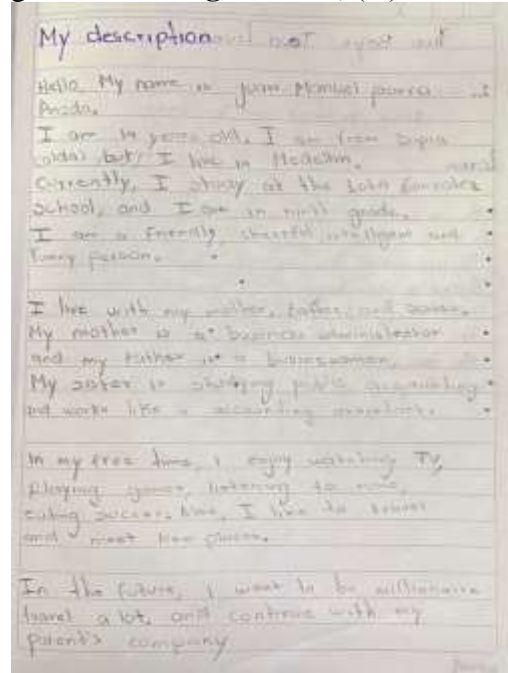 My description
Hello My name is Juan Manuel
I am 14 years old. I am from
but I live in Medellin.
Currently, I study at the
school, and I am in ninth grade.
I am a friendly, cheerful, intelligent and
funny person.
I live with my mother, father, and sister.
My mother is a business administrator
and my father is a
My sister is studying public accounting
and works like a accounting
In my free time, I enjoy watching TV,
playing games, listening to
soccer. Also, I like to
and meet new places.
In the future, I want to be millionaire
travel a lot, and continue with my
parent's company